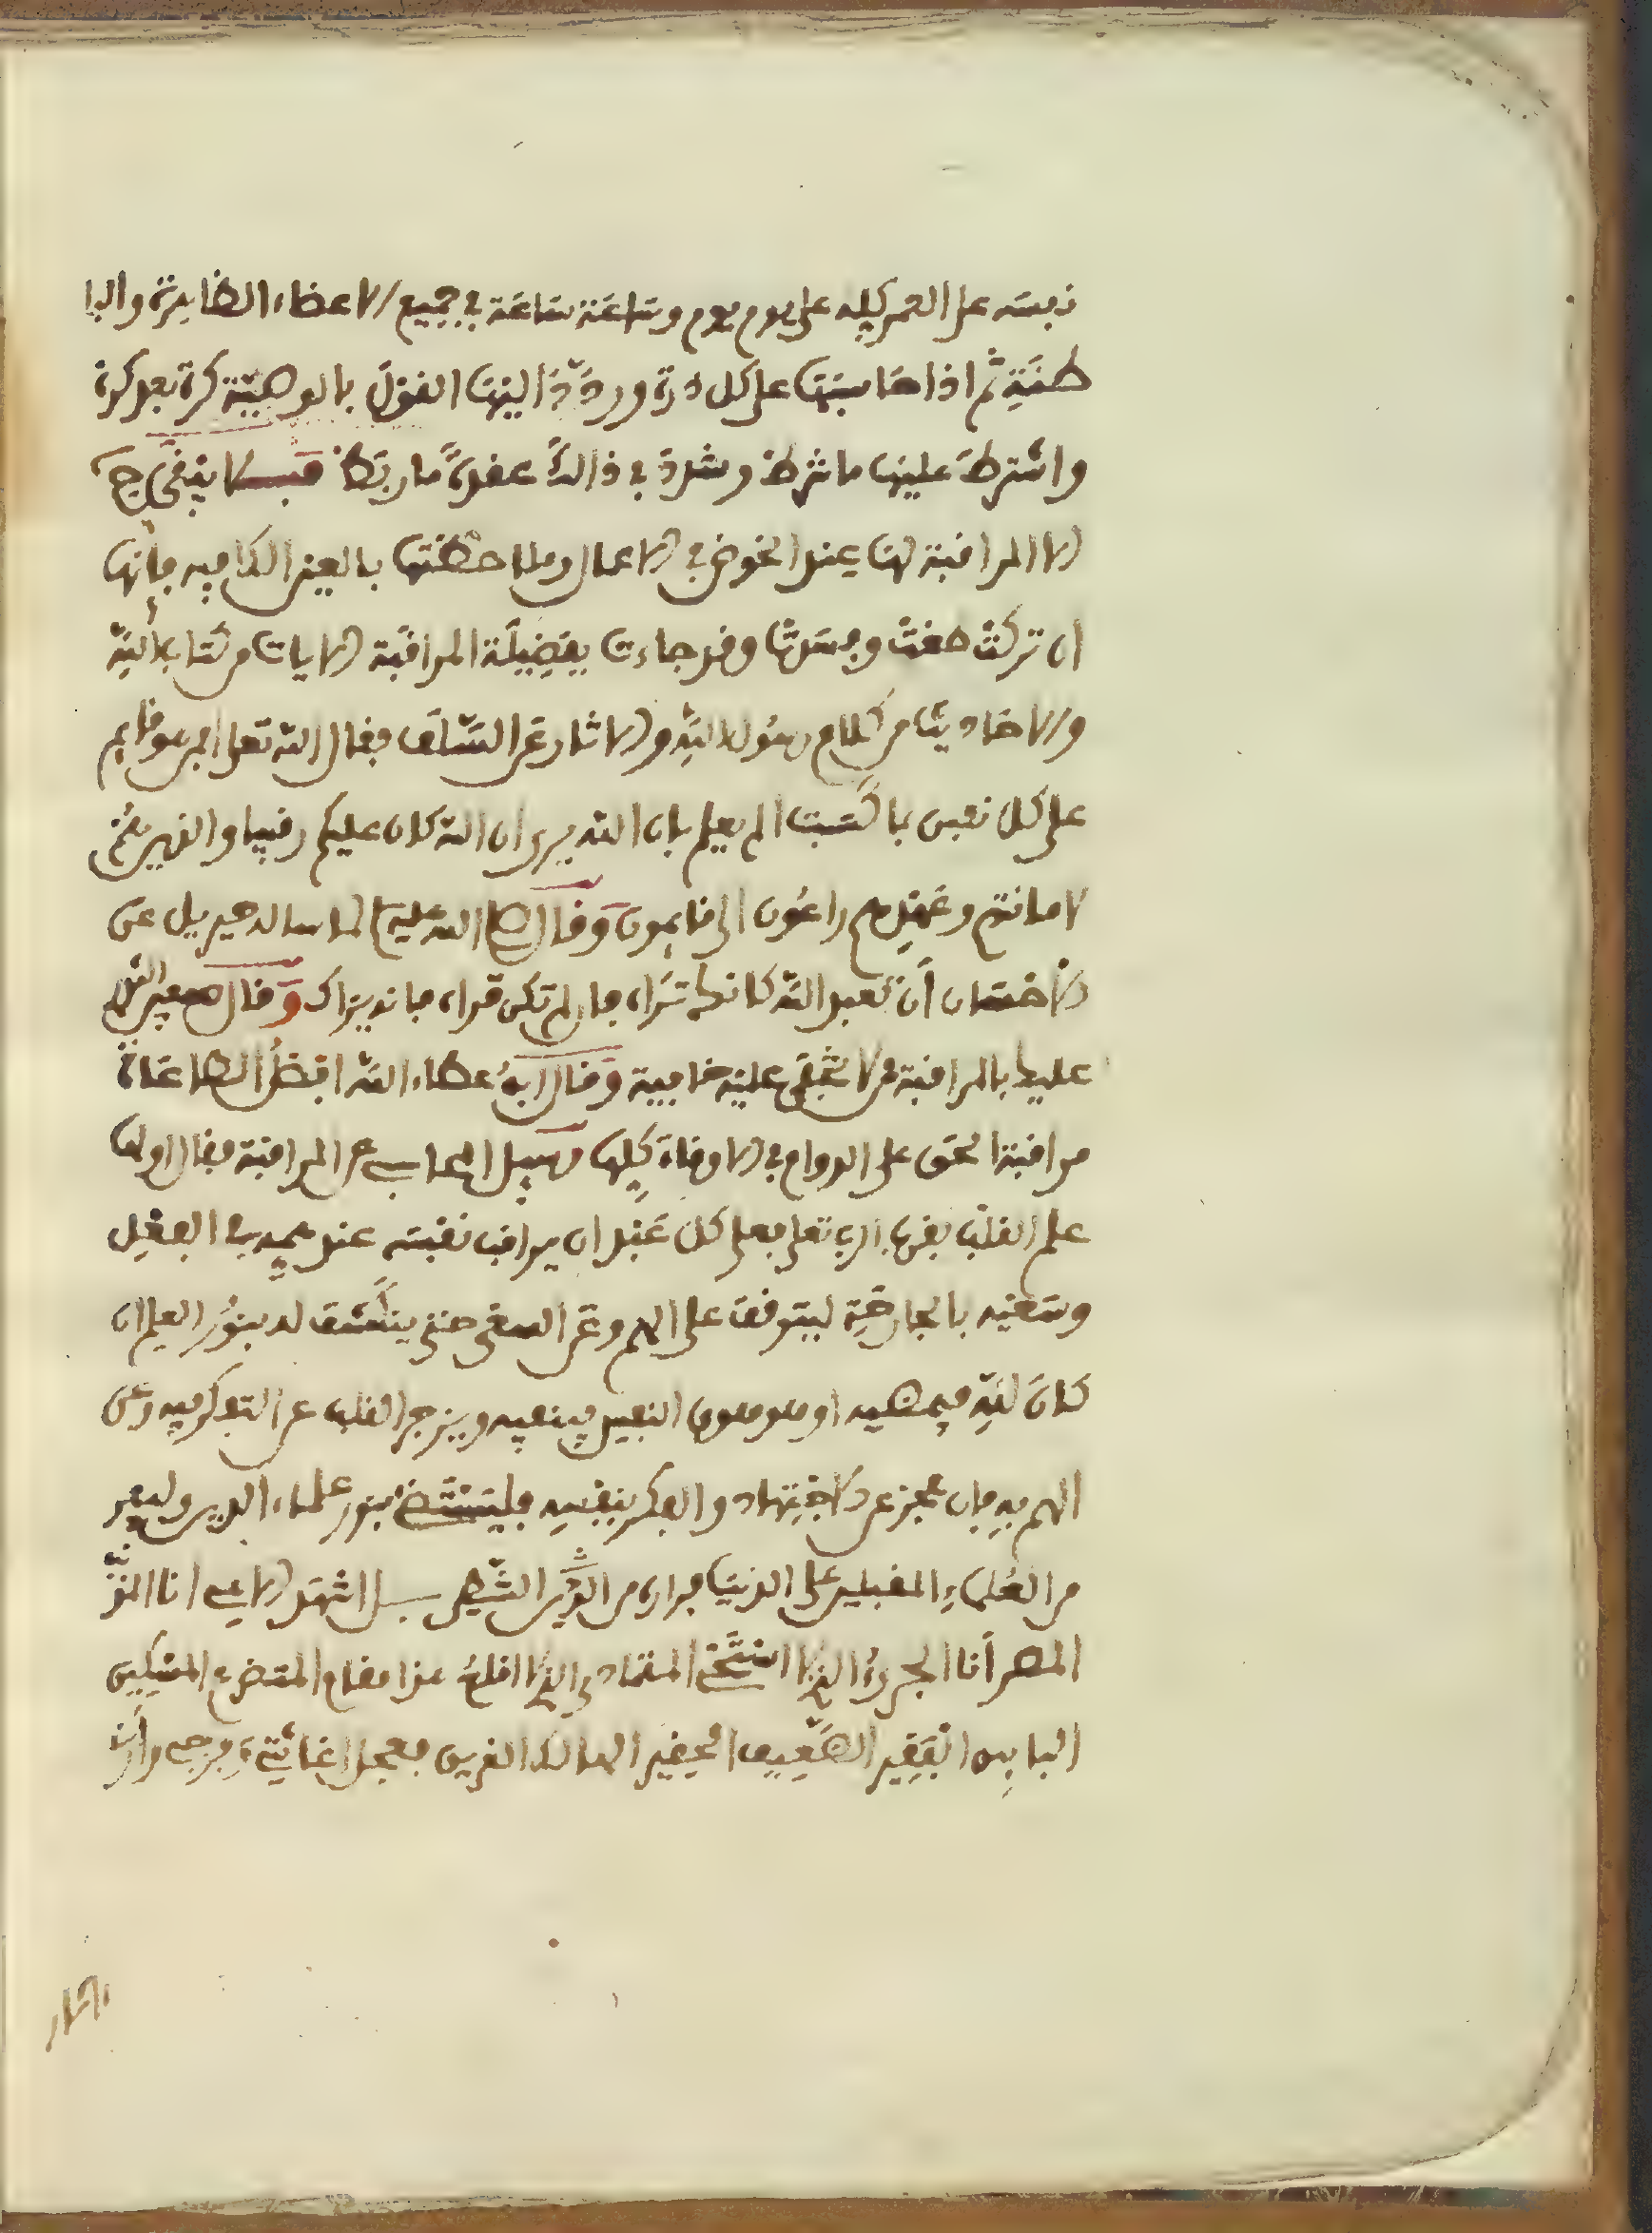 نفسه على العمر كله على يوم يوم وساعة ساعة في جميع الاعضاء الظاهرة والبا
طنة ثم اذا حاسبتها على كل ذرة ورددت اليها القول بالوصية كرة بعد كرة
واشترطت عليها ما شرطت وشددت في ذالك عقدة ما ربطت فبس لا يبقى ح
الا المراقبة لها عند الخوض في الاعمال وملاحظتها بالعين الكالية فانها
ان تركت طغت وفسدت وقد جاءت بفضيلة المراقبة الايات من كتاب الله
والاحاديث من كلام رسول الله والاثار عن السلف فقال الله تعلى افمن هو قايم
على كل نفس بما كسبت الم يعلم بان الله يرى ان الله كان عليكم رقيبا والذين هم
لاماناتهم وعهدهم راعون الى قايمون وقال صلى الله عليه لما ساله جبريل عن
الاحسان أن تعبد الله كانك تراه فان لم تكن تراه فانه يراك وقال سفين الثوري
عليك بالمراقبة من لا تخفى عليه خافية وقال ابن عطاء الله افضل الطاعات
مراقبة الحق على الدوام في الاوقات كلها وسيل المحاسبي عن المراقبة فقال اولها
علم القلب بقرب الرب تعلى فعلى كل عبد ان يراقب نفسه عند همه بالفعل
وسعيه بالجارحة ليتوقف على الهم وعن السعي حتى ينكشف له بنور العلم ان
كان لله فيمضيه او هو هوى النفس فيتقيه ويزجر القلب عن التفكر فيه وعن
الهم به فان عجز عن الاجتهاد والفكر بنفسه فليستضئ بنور علماء الدين وليفر
من العلماء المقبلين على الدنيا فراره من الشيطن بل اشد الاهي انا المقر
المصر أنا الجريء الذي لا استحي المتمادي الذي لا اقلع هذا مقام المتضرع المسكين
البايس الفقير الضعيف الحقير الهالك الغريق فعجل اغاثتي وفرجي وأرني
اثار